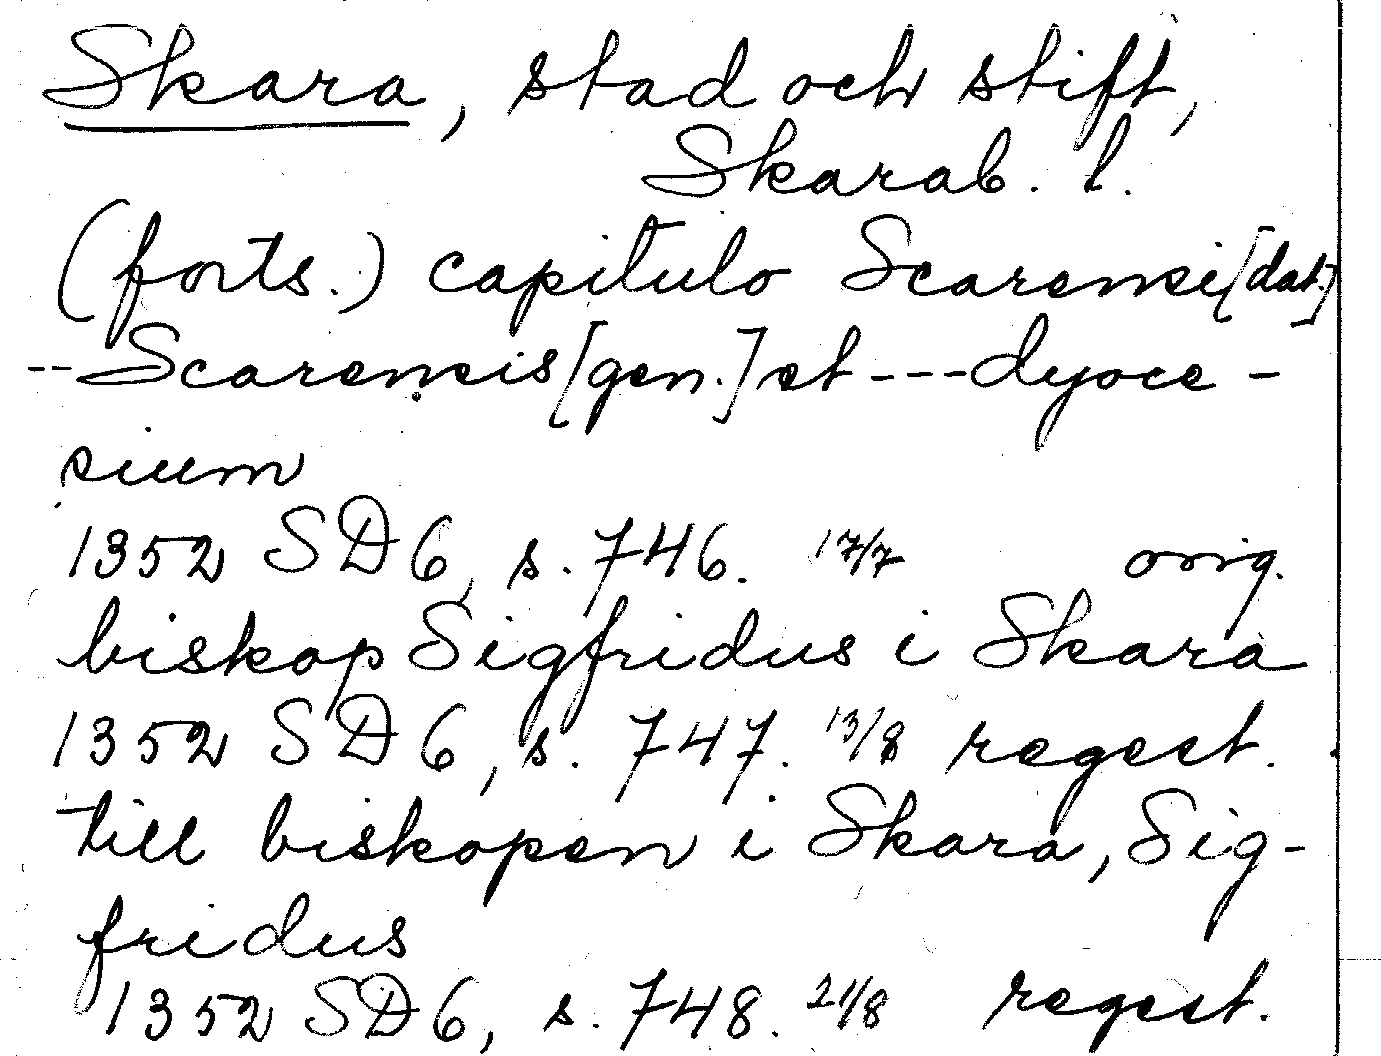 Skara, stad och stift,
Skarab. l.
(forts.) capitulo Scarensi [dat.]
--- Scarensis [gen.] et --- dyoce-
sium
1352 SD 6, s. 746. 17/7 orig.
biskop Sigfridus i Skara
1352 SD 6, s. 747. 13/8 regest.
till biskopen i Skara, Sig-
fridus
1352 SD 6, s. 748. 21/8 regest.